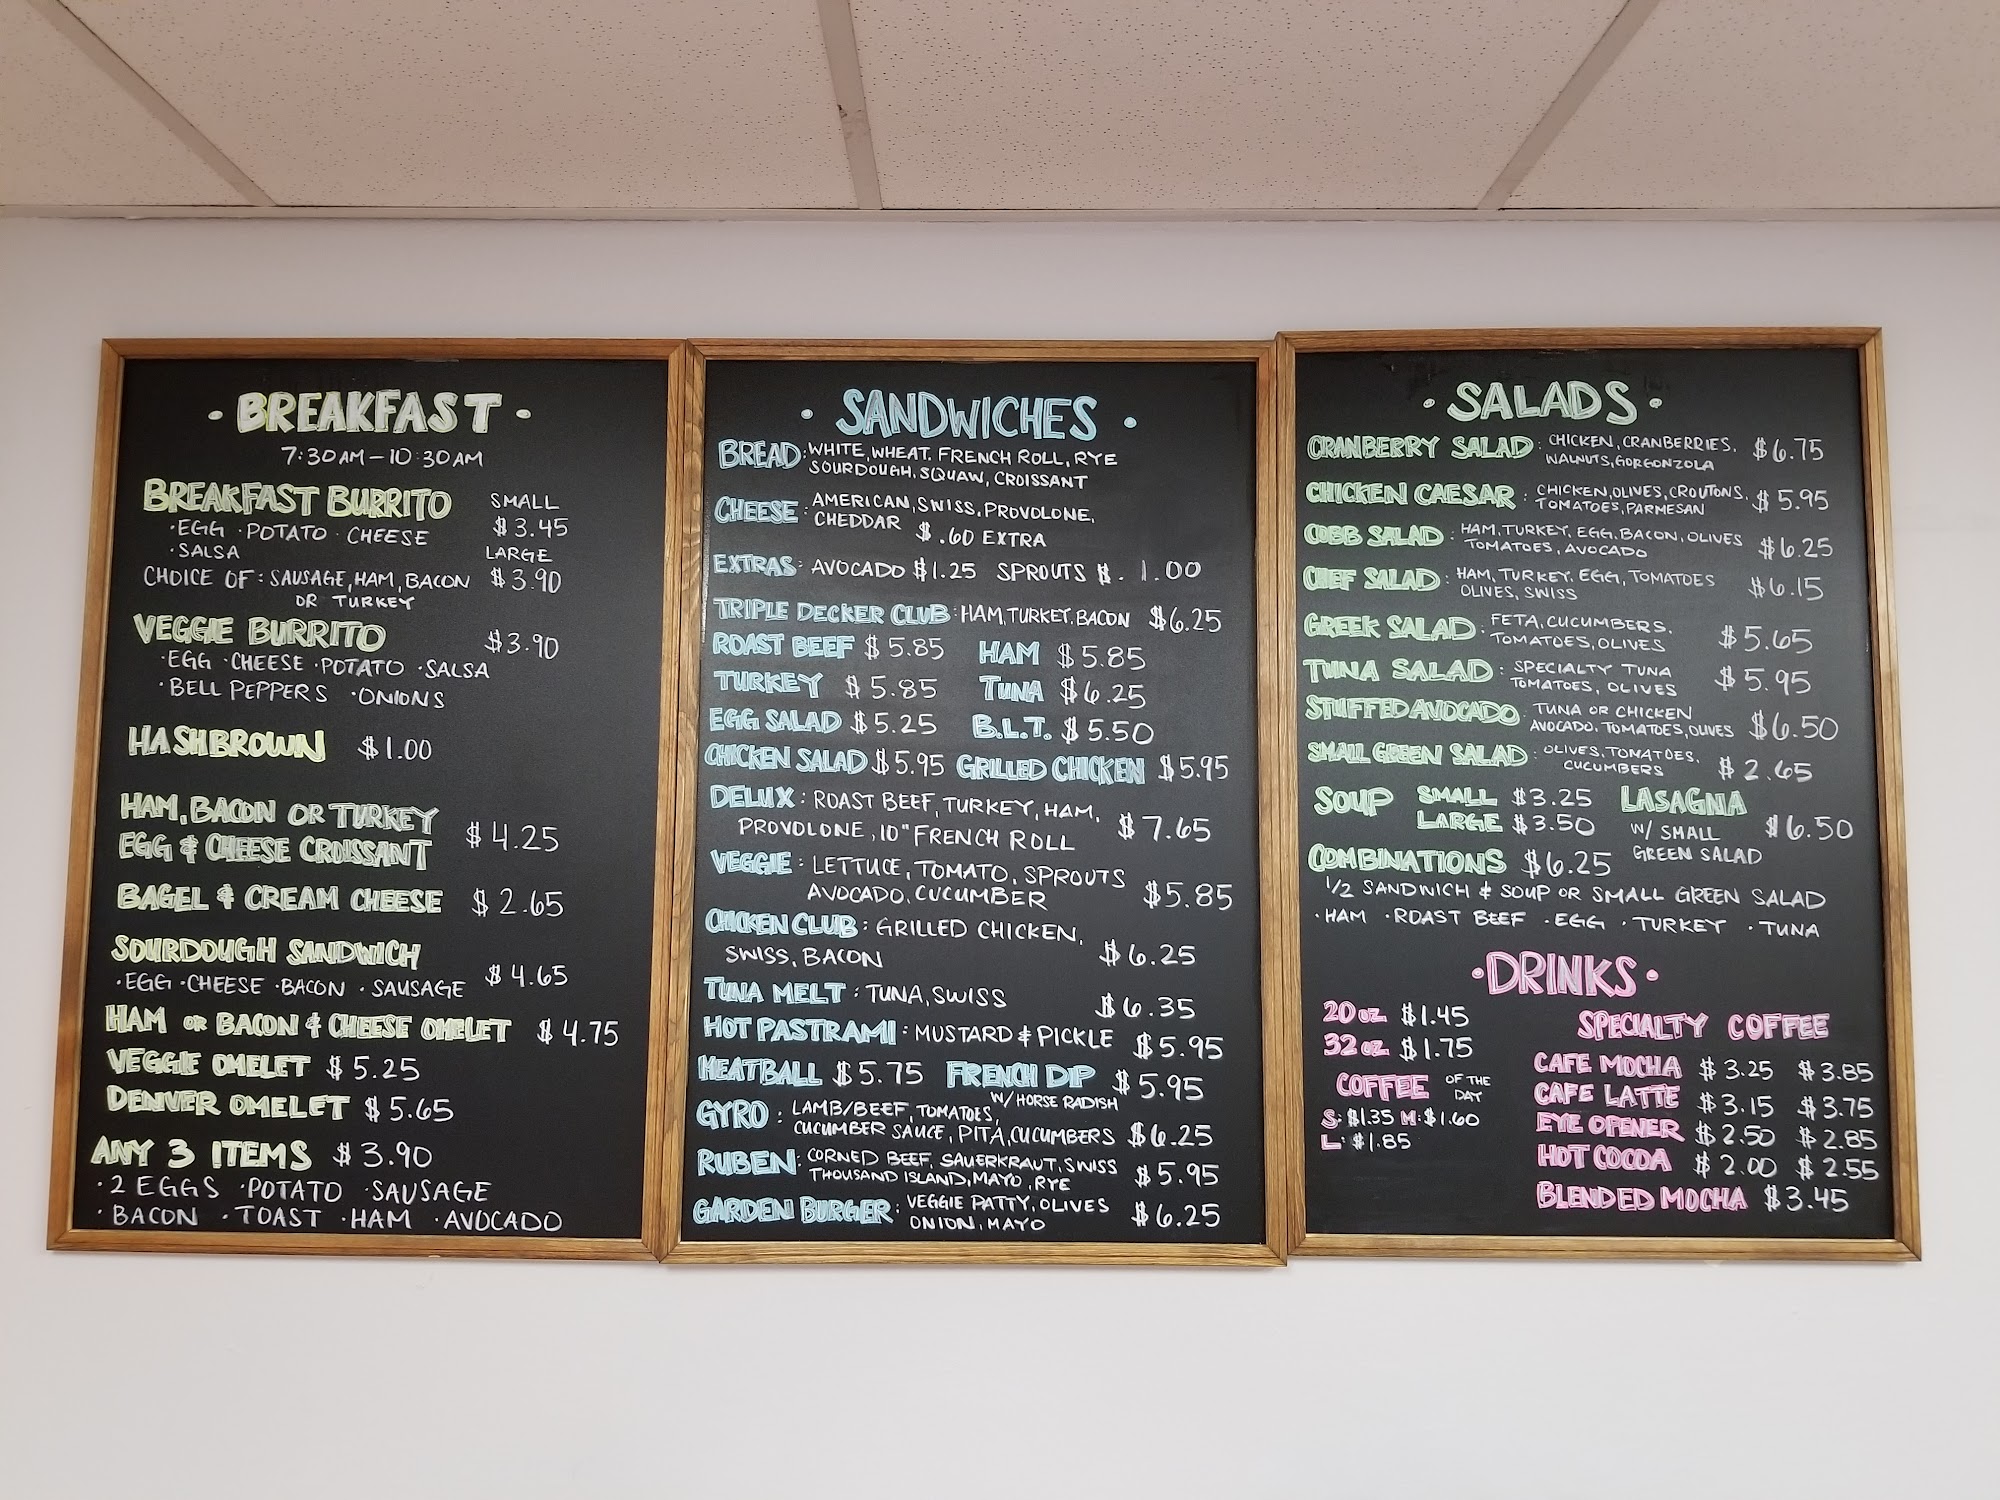 · BREAKFAST ·
7:30 AM – 10:30 AM
BREAKFAST BURRITO SMALL
$3.45
· EGG · POTATO · CHEESE
· SALSA LARGE
CHOICE OF: SAUSAGE, HAM, BACON $3.90
OR TURKEY
VEGGIE BURRITO $3.90
· EGG · CHEESE · POTATO · SALSA
· BELL PEPPERS · ONIONS
HASHBROWN $1.00
HAM, BACON OR TURKEY
EGG & CHEESE CROISSANT $4.25
BAGEL & CREAM CHEESE $2.65
SOURDOUGH SANDWICH
· EGG · CHEESE · BACON · SAUSAGE $4.65
HAM OR BACON & CHEESE OMELET $4.75
VEGGIE OMELET $5.25
DENVER OMELET $5.65
ANY 3 ITEMS $3.90
· 2 EGGS · POTATO · SAUSAGE
· BACON · TOAST · HAM · AVOCADO
· SANDWICHES ·
BREAD: WHITE, WHEAT. FRENCH ROLL, RYE
SOURDOUGH, SQUAW, CROISSANT
CHEESE: AMERICAN, SWISS, PROVOLONE,
CHEDDAR $.60 EXTRA
EXTRAS: AVOCADO $1.25 SPROUTS $. 1.00
TRIPLE DECKER CLUB: HAM, TURKEY, BACON $6.25
ROAST BEEF $5.85 HAM $5.85
TURKEY $5.85 TUNA $6.25
EGG SALAD $5.25 B.L.T. $5.50
CHICKEN SALAD $5.95 GRILLED CHICKEN $5.95
DELUX: ROAST BEEF, TURKEY, HAM,
PROVOLONE, 10" FRENCH ROLL $7.65
VEGGIE: LETTUCE, TOMATO, SPROUTS
AVOCADO, CUCUMBER $5.85
CHICKEN CLUB: GRILLED CHICKEN,
SWISS, BACON $6.25
TUNA MELT: TUNA, SWISS $6.35
HOT PASTRAMI: MUSTARD & PICKLE $5.95
MEATBALL $5.75 FRENCH DIP $5.95
W/ HORSE RADISH
GYRO: LAMB/BEEF, TOMATOES,
CUCUMBER SAUCE, PITA, CUCUMBERS $6.25
RUBEN: CORNED BEEF, SAUERKRAUT, SWISS
THOUSAND ISLAND, MAYO, RYE $5.95
GARDEN BURGER: VEGGIE PATTY, OLIVES
ONION, MAYO $6.25
· SALADS ·
CRANBERRY SALAD: CHICKEN, CRANBERRIES, $6.75
WALNUTS, GORGONZOLA
CHICKEN CAESAR: CHICKEN, OLIVES, CROUTONS, $5.95
TOMATOES, PARMESAN
COBB SALAD: HAM, TURKEY, EGG, BACON, OLIVES $6.25
TOMATOES, AVOCADO
CHEF SALAD: HAM, TURKEY, EGG, TOMATOES $6.15
OLIVES, SWISS
GREEK SALAD: FETA, CUCUMBERS, $5.65
TOMATOES, OLIVES
TUNA SALAD: SPECIALTY TUNA $5.95
TOMATOES, OLIVES
STUFFED AVOCADO: TUNA OR CHICKEN $6.50
AVOCADO, TOMATOES, OLIVES
SMALL GREEN SALAD: OLIVES, TOMATOES, $2.65
CUCUMBERS
SOUP SMALL $3.25 LASAGNA
LARGE $3.50 W/ SMALL $6.50
GREEN SALAD
COMBINATIONS $6.25
1/2 SANDWICH & SOUP OR SMALL GREEN SALAD
· HAM · ROAST BEEF · EGG · TURKEY · TUNA
· DRINKS ·
20 oz $1.45
32 oz $1.75
COFFEE OF THE
DAY
S: $1.35 M: $1.60
L: $1.85
SPECIALTY COFFEE
CAFE MOCHA $3.25 $3.85
CAFE LATTE $3.15 $3.75
EYE OPENER $2.50 $2.85
HOT COCOA $2.00 $2.55
BLENDED MOCHA $3.45